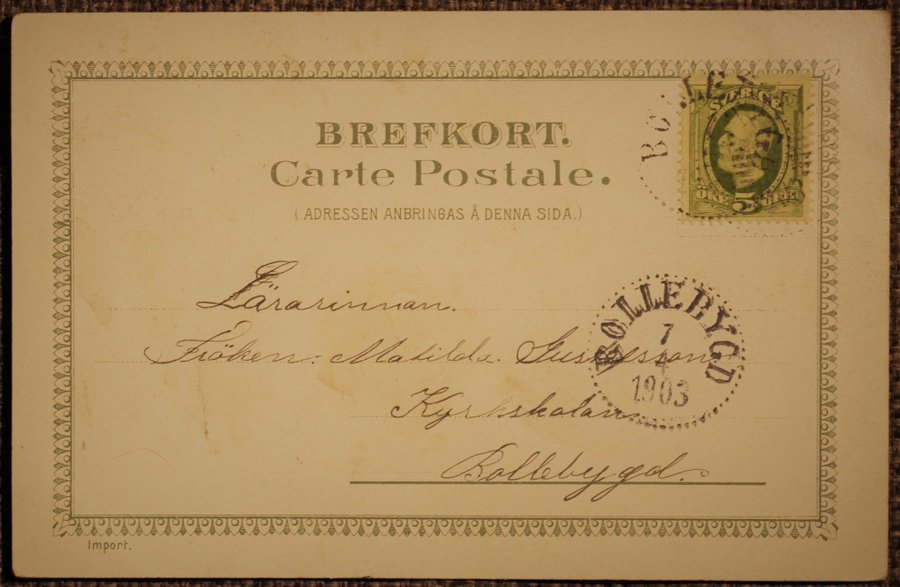 BREFKORT.
Carte Postale.
(ADRESSEN ANBRINGAS Å DENNA SIDA.)
SVERIGE
5
Lärarinnan.
Fröken: Matilda Gustafsson
Kyrkskolan
Bollebygd.
BOLLEBYGD
7
4
1903
Import.